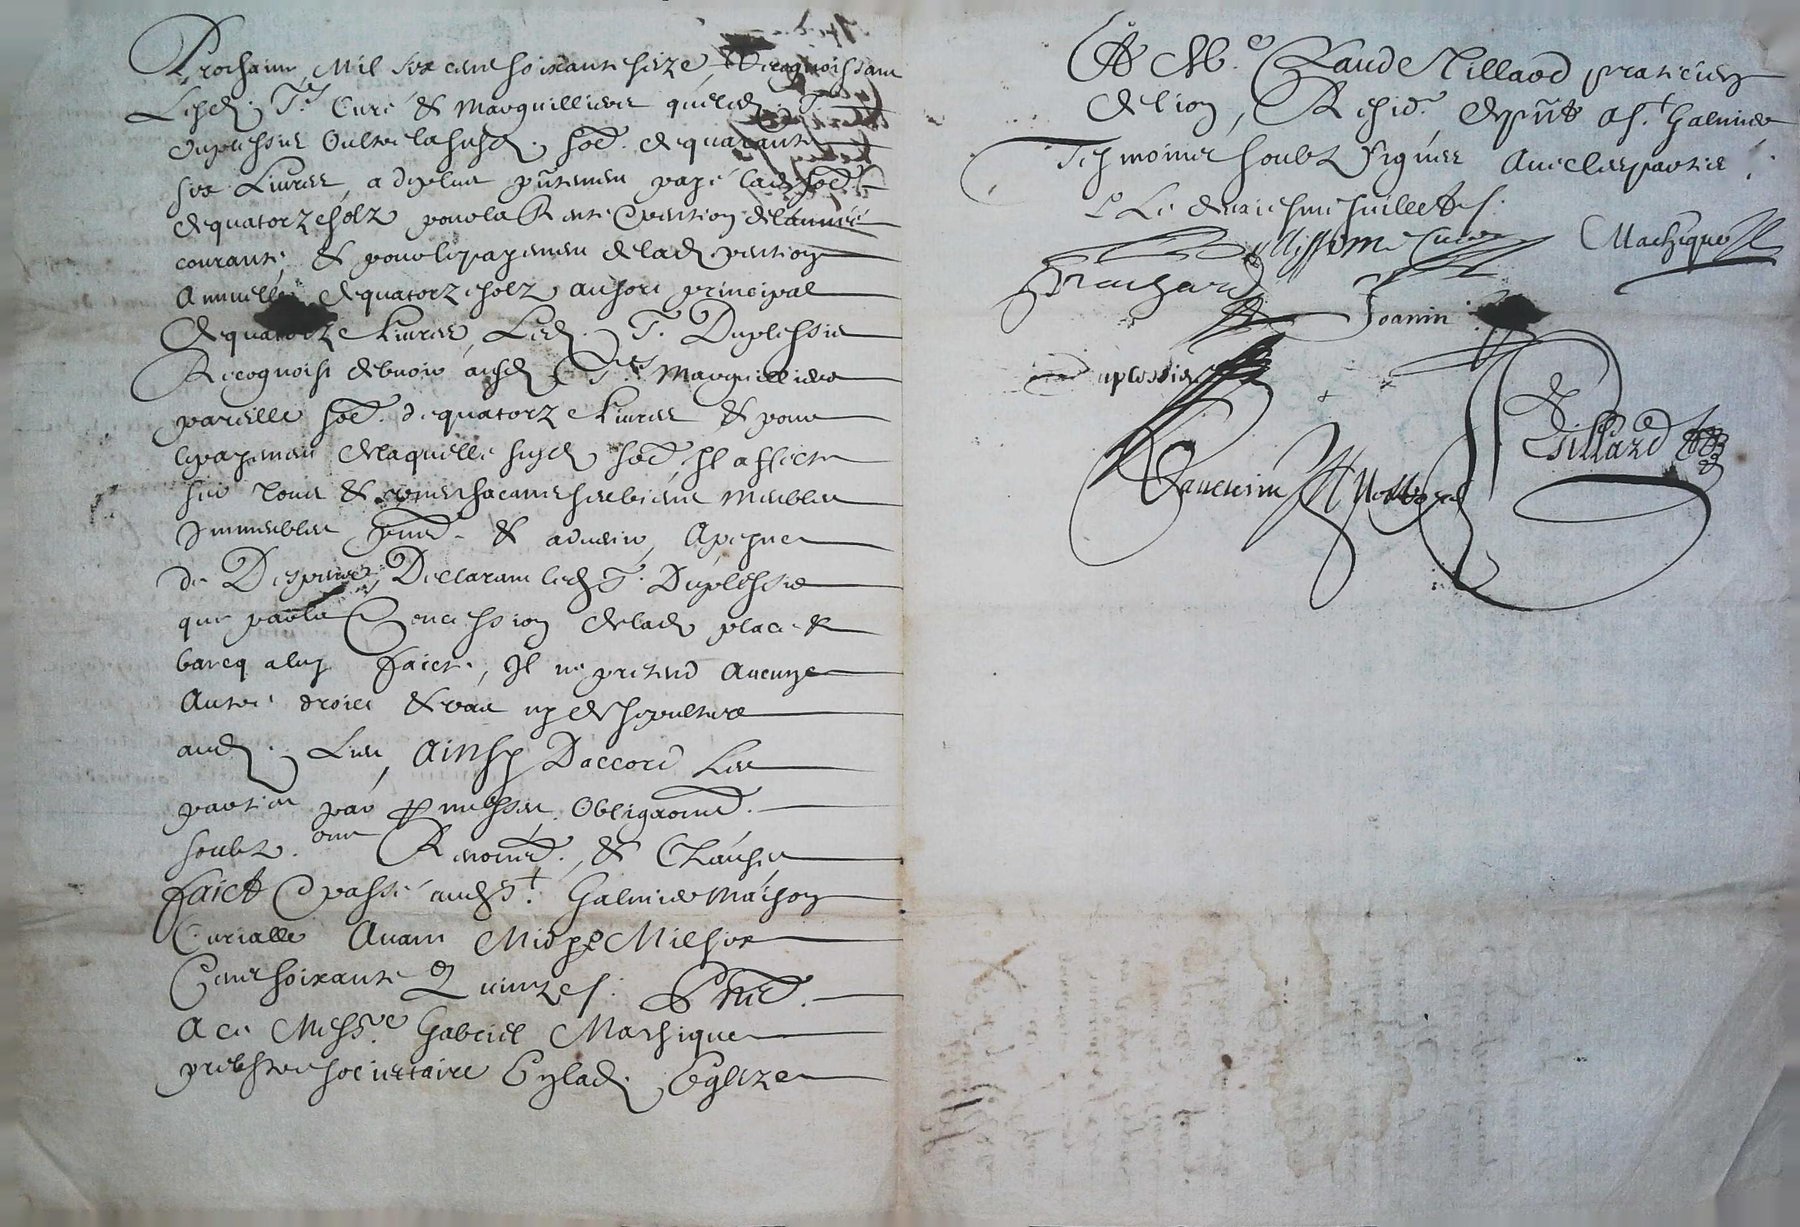 Prochain, Mil six cent soixante seize, Recognoissant
Lesd. Srs Curé & Marguilliers que led. Sr
Duplessis Oultre lasusd. some. de quarante
six Livres, a de plus pntemen payé lad. some
de quatorze solz pour la Rente & pention de lannée
courante, & pour le payement de lad. pention
Annuelle de quatorze solz au sort principal
de quatorze Livres, Led. Sr. Duplessis
Recognoist debvoir ausd. Srs Marguilliers
pareille some. de quatorze Livres & pour
le payement de laquelle susd. some Il affecte
sur tous & uns chacuns ses biens Meubles
Immeubles pnts & advenir, A peyne
de Despens, Declarant led. Sr. Duplessis
que par la Concession de lad. place &
bancq a luy faicte, Il ne pretend Aucun
Autre droict de sepulture
aud. Lieu, Ainsy Daccord Les
parties par promesses, Obligaons.
soubz. Renons. & Clauses
faict & passé aud. St. Galmier Maison
Curialle Avant Midy Mil six
Cent soixante Quinze. Pnt.
A ce Messre Gabriel Machique
prebstre societaire En lad. Eglize
Et Me. Claude Tillard praticien
de lion, Resid. de pnt a St Galmier
Tesmoins soubz signés Avec les parties
Le deuxiesme juillet.
Curé Machique
Ponchard
Joanin
Duplessis
Tillard